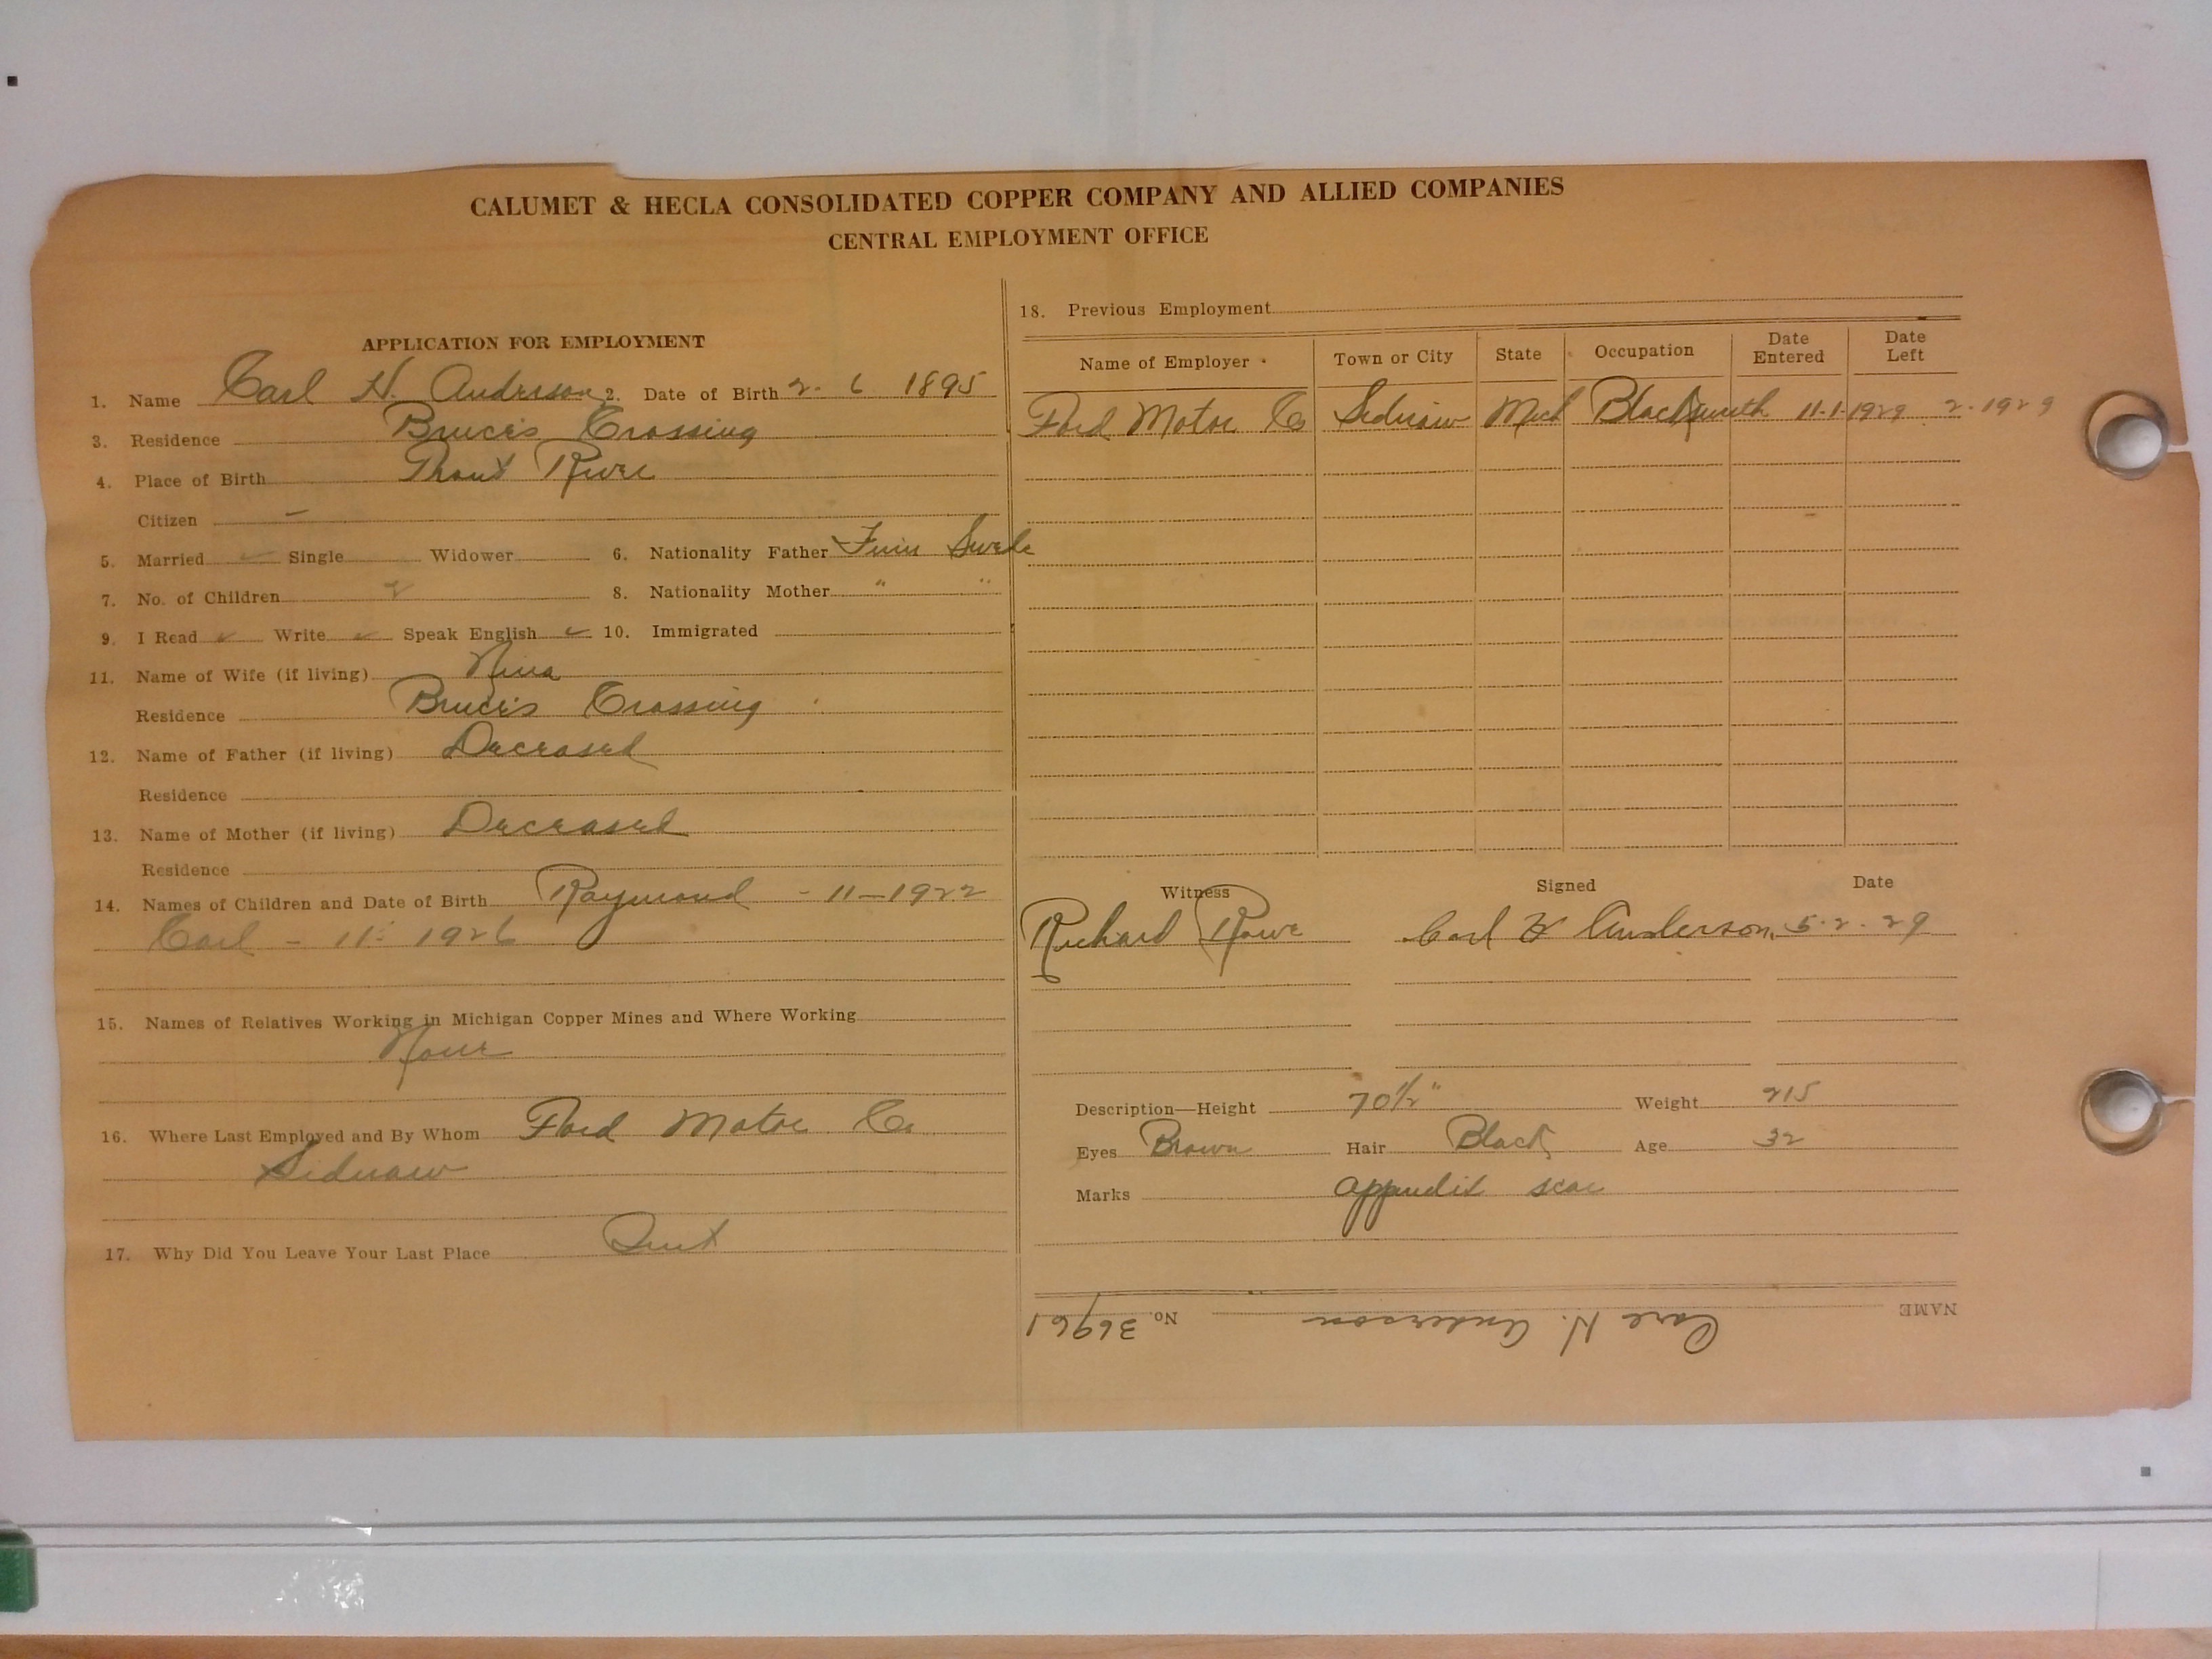 CALUMET & HECLA CONSOLIDATED COPPER COMPANY AND ALLIED COMPANIES
CENTRAL EMPLOYMENT OFFICE
APPLICATION FOR EMPLOYMENT
1. Name Carl H. Anderson 2. Date of Birth 2-6 1895
3. Residence Bruce's Crossing
4. Place of Birth Trout River
Citizen –
5. Married ✓ Single Widower 6. Nationality Father Finn Swede
7. No. of Children 2 8. Nationality Mother " "
9. I Read ✓ Write ✓ Speak English ✓ 10. Immigrated
11. Name of Wife (if living) Nina
Residence Bruce's Crossing
12. Name of Father (if living) Deceased
Residence
13. Name of Mother (if living) Deceased
Residence
14. Names of Children and Date of Birth Raymond - 11-1922
Carl - 11- 1926
15. Names of Relatives Working in Michigan Copper Mines and Where Working
None
16. Where Last Employed and By Whom Ford Motor Co
Sidnaw
17. Why Did You Leave Your Last Place Quit
18. Previous Employment
Name of Employer Town or City State Occupation Date Entered Date Left
Ford Motor Co Sidnaw Mich Blacksmith 11-1-1929 2-1929
Witness Signed Date
Richard Rowe Carl H Anderson 5-2-29
Description—Height 70½" Weight 215
Eyes Brown Hair Black Age 32
Marks appendit scar
NAME Carl H. Anderson No. 36961